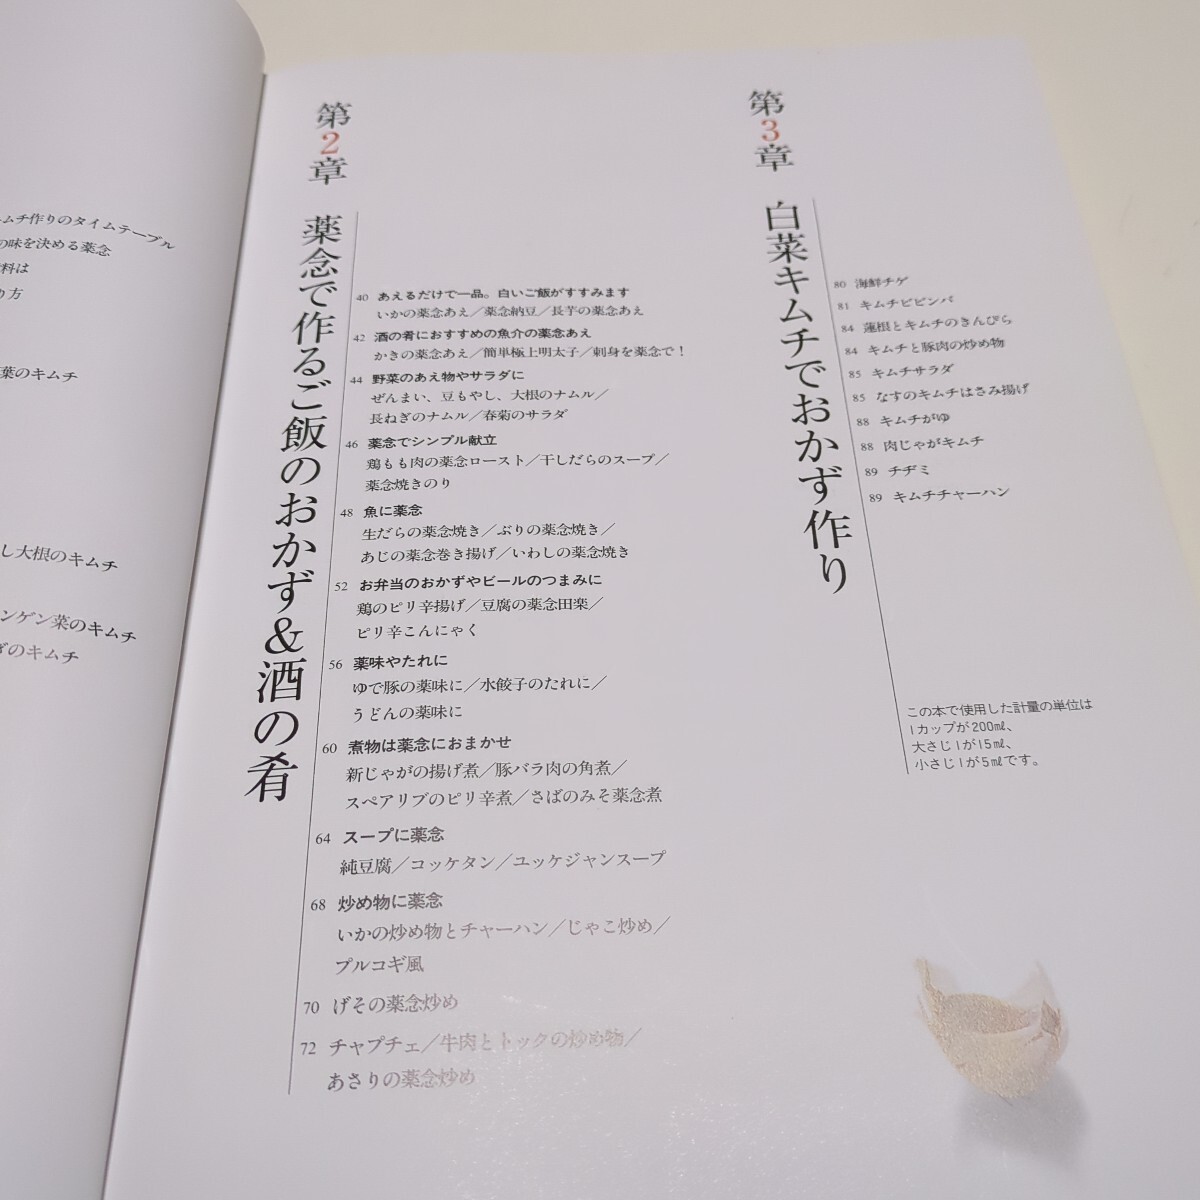 キムチ作りのタイムテーブル
の味を決める薬念
料は
り方
葉のキムチ
し大根のキムチ
ンゲン菜のキムチ
ぎのキムチ
第2章
薬念で作るご飯のおかず&酒の肴
40 あえるだけで一品。白いご飯がすすみます
いかの薬念あえ／薬念納豆／長芋の薬念あえ
42 酒の肴におすすめの魚介の薬念あえ
かきの薬念あえ／簡単極上明太子／刺身を薬念で！
44 野菜のあえ物やサラダに
ぜんまい、豆もやし、大根のナムル／
長ねぎのナムル／春菊のサラダ
46 薬念でシンプル献立
鶏もも肉の薬念ロースト／干しだらのスープ／
薬念焼きのり
48 魚に薬念
生だらの薬念焼き／ぶりの薬念焼き／
あじの薬念巻き揚げ／いわしの薬念焼き
52 お弁当のおかずやビールのつまみに
鶏のピリ辛揚げ／豆腐の薬念田楽／
ピリ辛こんにゃく
56 薬味やたれに
ゆで豚の薬味に／水餃子のたれに／
うどんの薬味に
60 煮物は薬念におまかせ
新じゃがの揚げ煮／豚バラ肉の角煮／
スペアリブのピリ辛煮／さばのみそ薬念煮
64 スープに薬念
純豆腐／コッケタン／ユッケジャンスープ
68 炒め物に薬念
いかの炒め物とチャーハン／じゃこ炒め／
プルコギ風
70 げその薬念炒め
72 チャプチェ／牛肉とトックの炒め物／
あさりの薬念炒め
第3章
白菜キムチでおかず作り
80 海鮮チゲ
81 キムチビビンバ
84 蓮根とキムチのきんぴら
84 キムチと豚肉の炒め物
85 キムチサラダ
85 なすのキムチはさみ揚げ
88 キムチがゆ
88 肉じゃがキムチ
89 チヂミ
89 キムチチャーハン
この本で使用した計量の単位は
1カップが200㎖、
大さじ1が15㎖、
小さじ1が5㎖です。